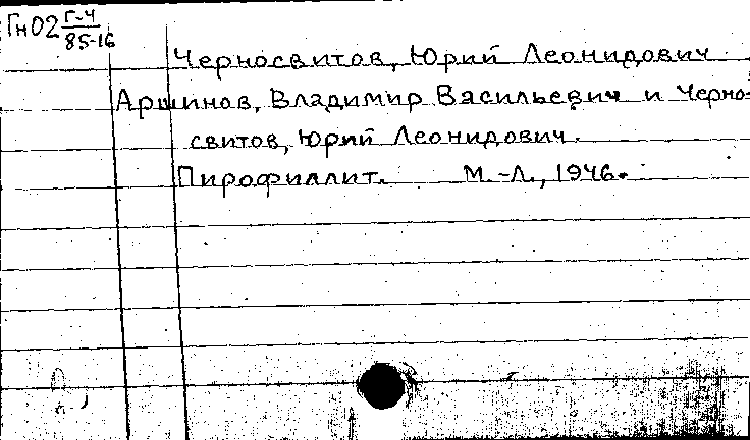 Гн02 Г-4
85-16
Черносвитов, Юрий Леонидович
Аршинов, Владимир Васильевич и Черно-
свитов, Юрий Леонидович.
Пирофиллит. М.-Л., 1946.